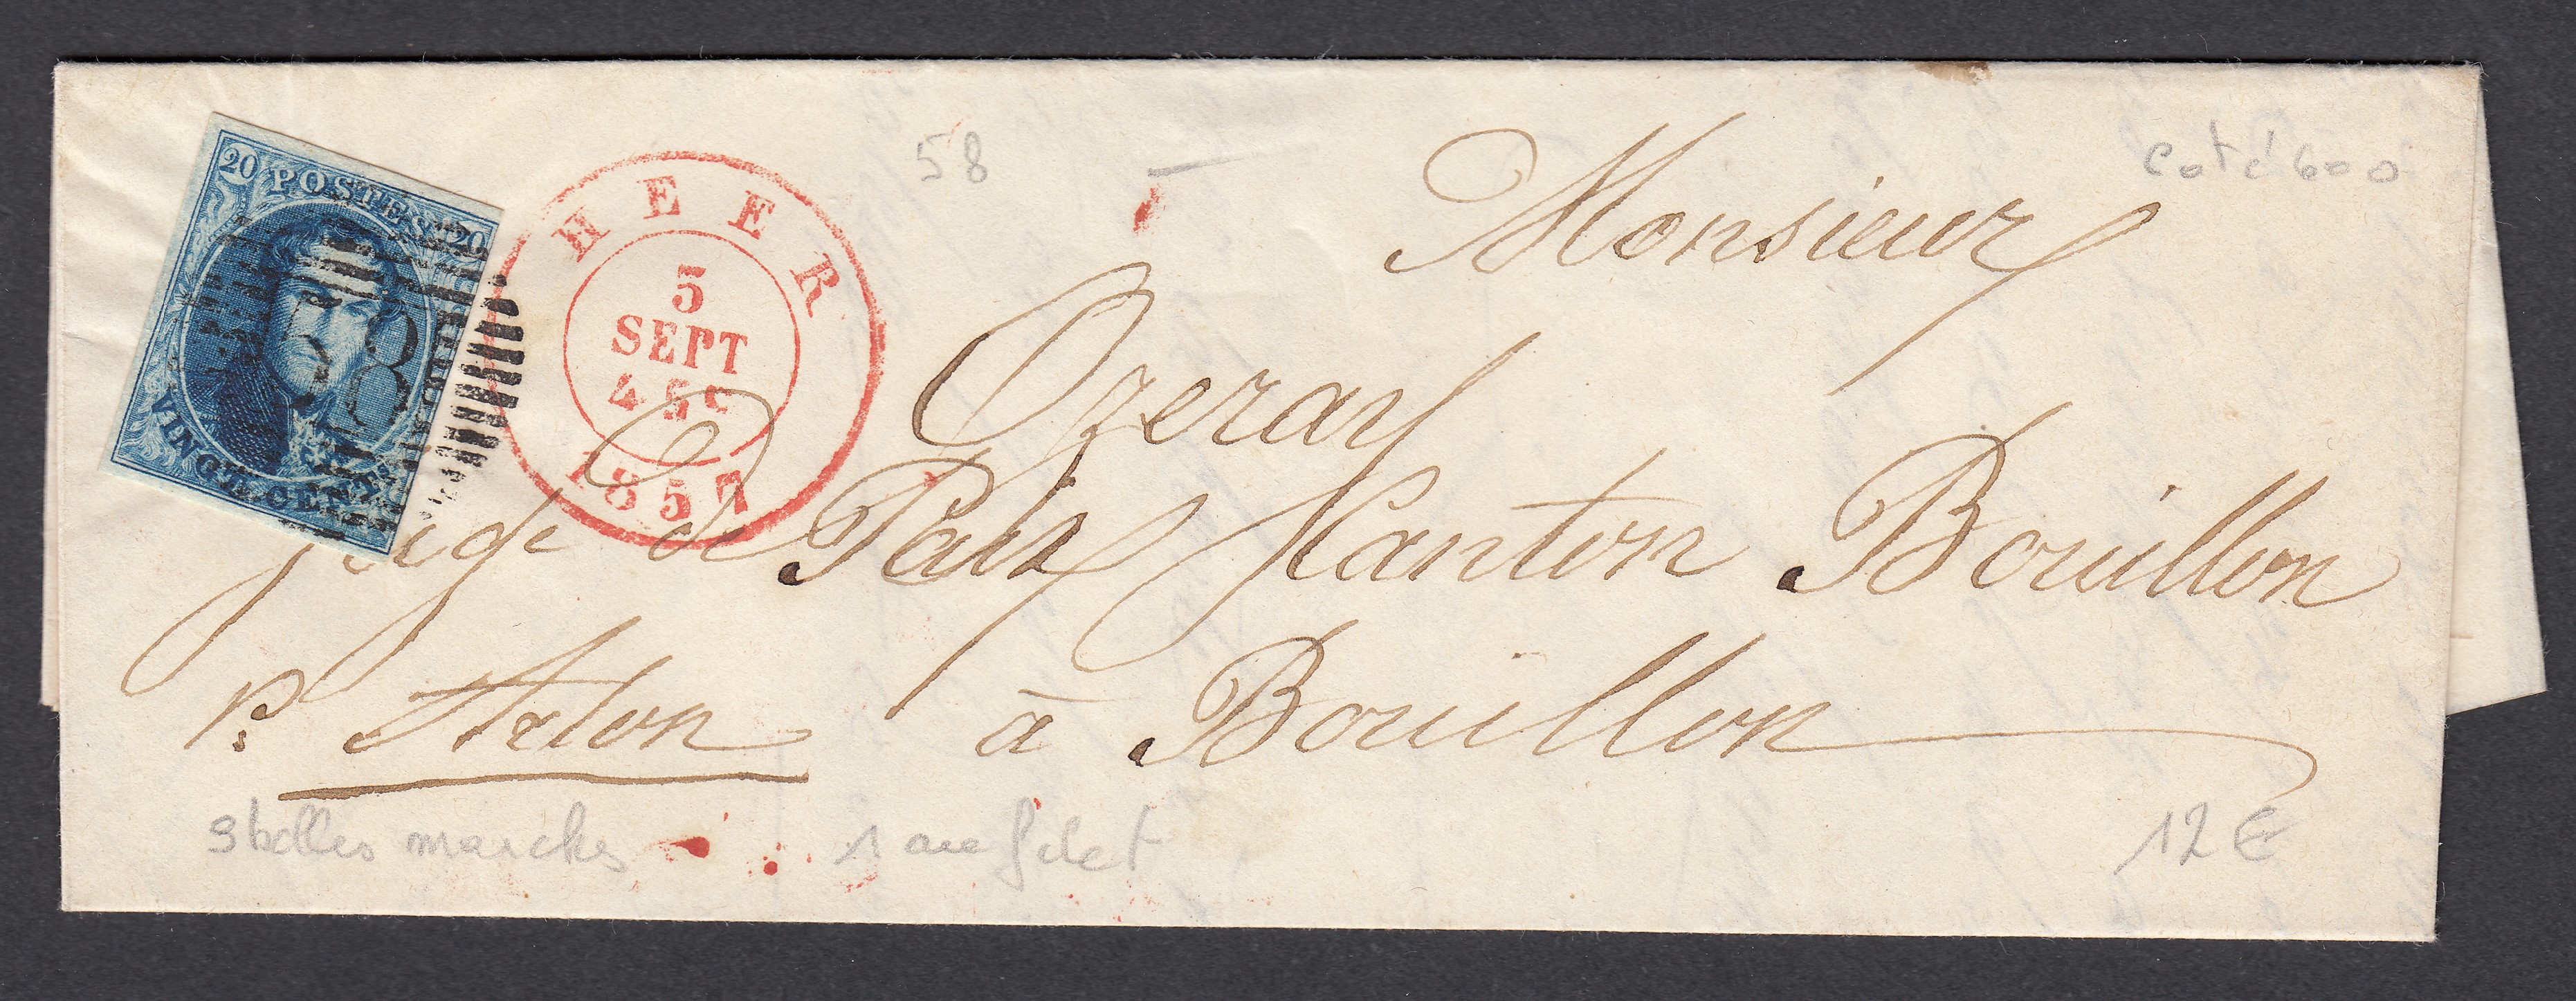 20 POSTES 20
58
VINGT CENTS
HEER
5
SEPT
4 S
1857
58
Coté 600
Monsieur
Ozeray
juge de Paix Canton Bouillon
p. Arlon à Bouillon
3 belles marches
1 au filet
12 €